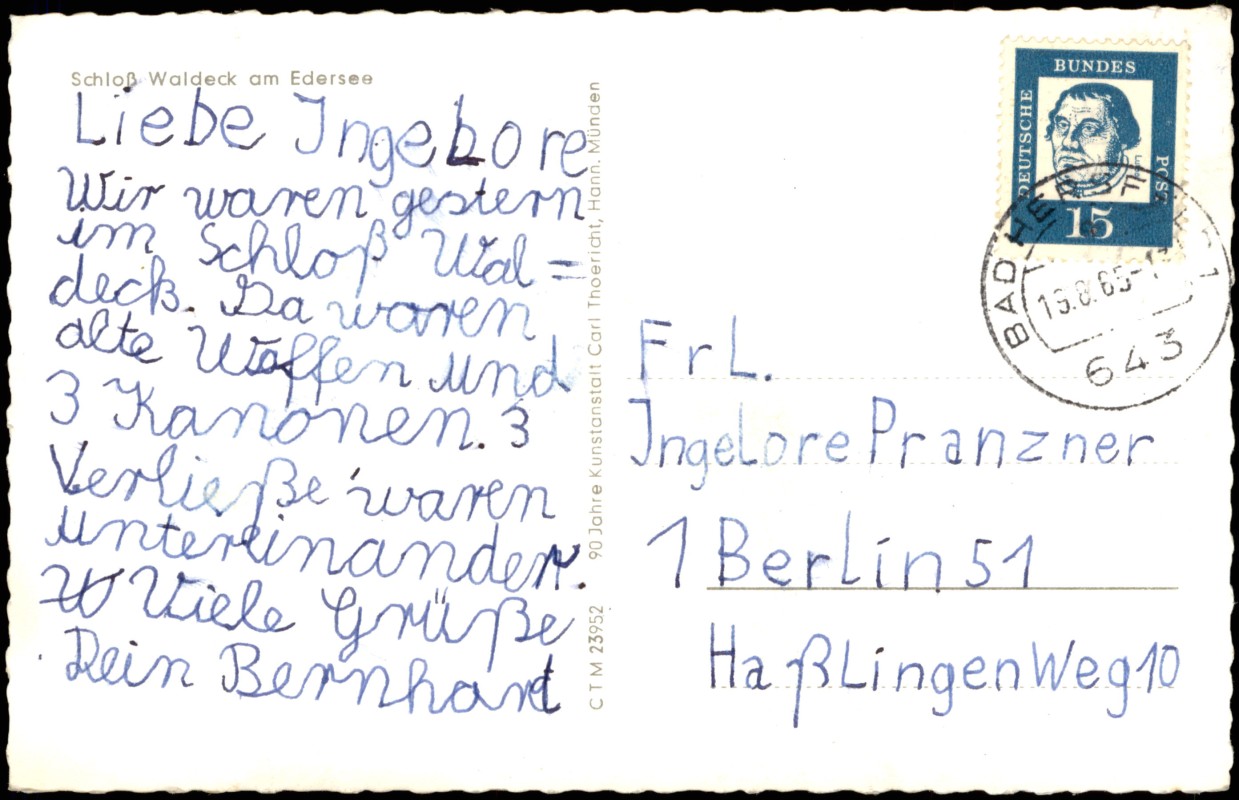 Schloß Waldeck am Edersee
Liebe Ingelore
Wir waren gestern
im Schloß Wal=
deck. Da waren
alte Waffen und
3 Kanonen. 3
Verließe waren
untereinander.
Viele Grüße
Dein Bernhard
CTM 23952 90 Jahre Kunstanstalt Carl Thoericht, Hann. Münden
DEUTSCHE
BUNDES
POST
15
BAD HE
643
Frl.
Ingelore Pranzner
1 Berlin 51
Haßlingen Weg 10